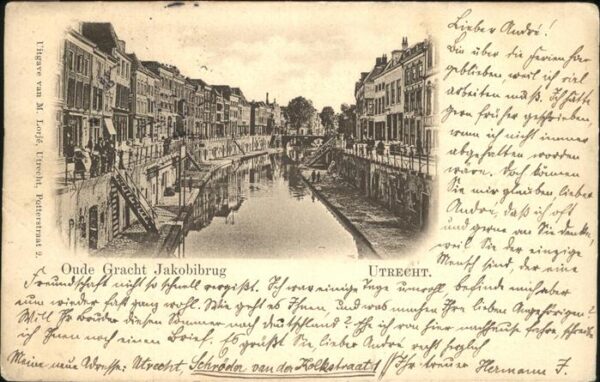 Uitgave van M. Lorjé, Utrecht, Potterstraat 9.
Oude Gracht Jakobibrug
UTRECHT.
Lieber André!
Bin über die Ferien hier
geblieben weil ich viel
arbeiten muß. Ich hätte
gern früher geschrieben,
wenn ich nicht immer
abgehalten worden
wäre. Doch können
Sie mir glauben, lieber
André, daß ich oft
und gerne an Sie denke,
weil Sie der einzige
Mensch sind, der eine
Freundschaft nicht so schnell vergißt. Ich war einige Tage unwohl, befinde mich aber
nun wieder fast ganz wohl. Wie geht es Ihnen, und was machen Ihre lieben Angehörigen?
Will Ihr Bruder diesen Sommer nach Deutschland? Ehe ich von hier nachhause fahre schreibe
ich Ihnen noch einen Brief. Es grüßt Sie lieber André recht herzlich
Meine neue Adresse: Utrecht, Schröder van der Kolkstraat 1 Ihr treuer Hermann F.